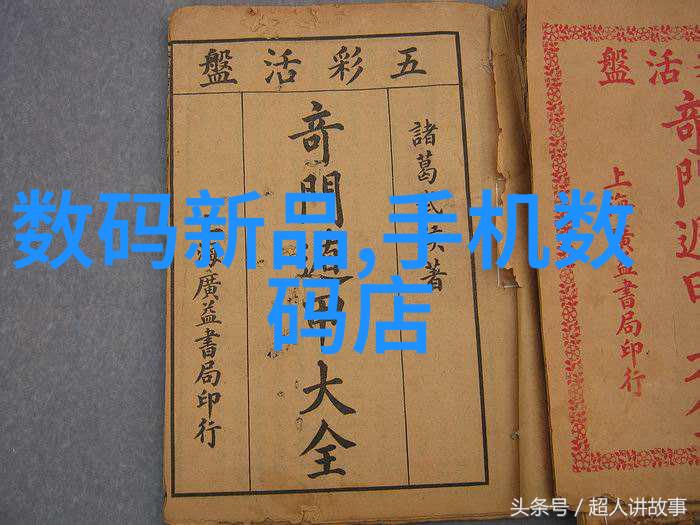 五彩活盤
諸葛武侯著
奇門遁甲大全
上海廣益書局印行
活盤
奇門遁甲大全
上海廣益書局印行
数码新品,手机数
码店
头条号 / 超人讲故事